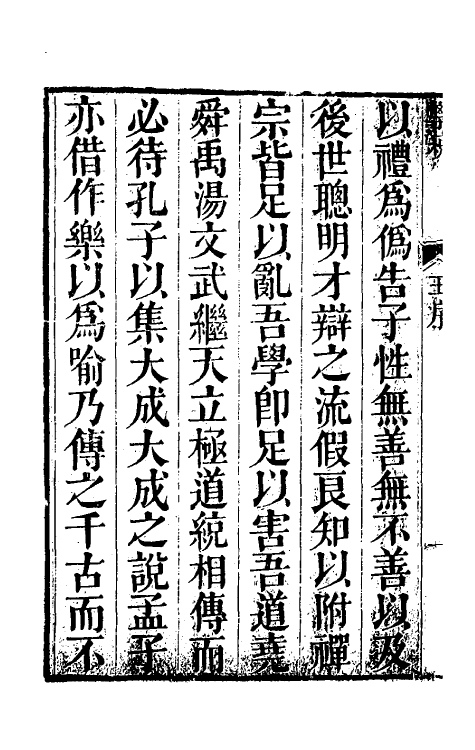 以禮爲僞告子性無善無不善以及
後世聰明才辯之流假良知以附禪
宗皆足以亂吾學卽足以害吾道堯
舜禹湯文武繼天立極道統相傳而
必待孔子以集大成大成之說孟子
亦借作樂以爲喻乃傳之千古而不